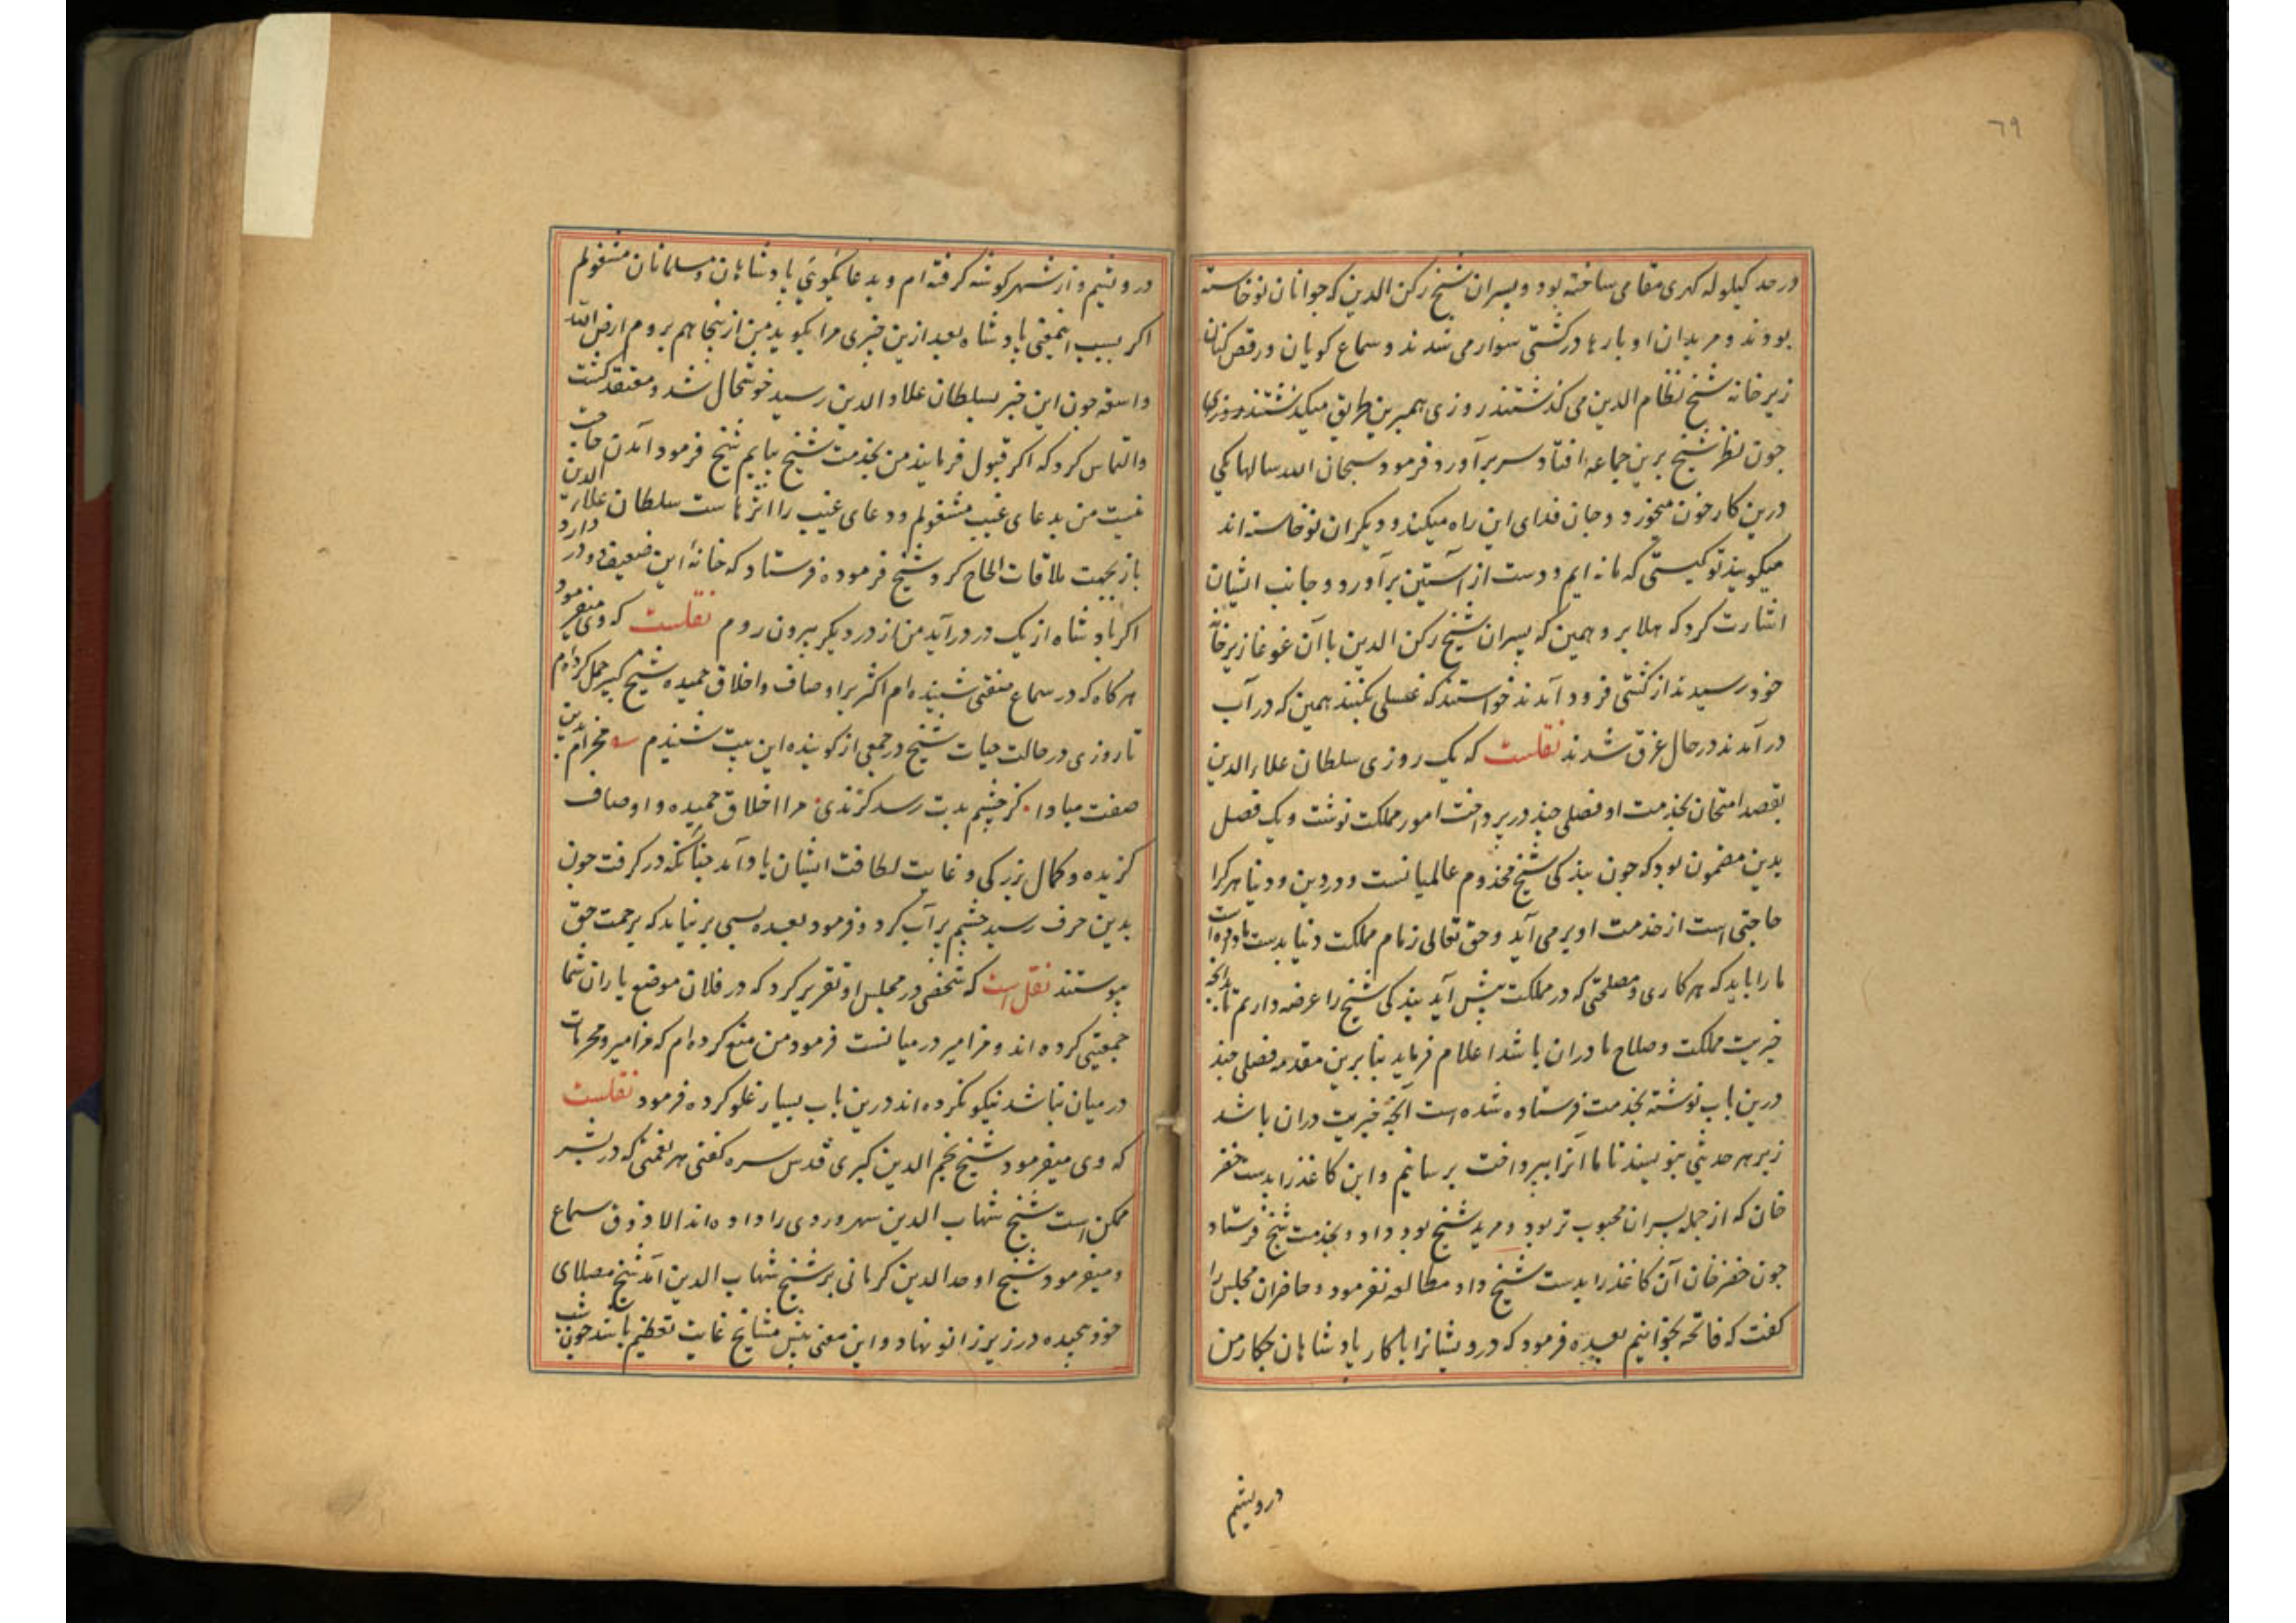 ۶۹
در حد کیلوله کهری مقامی ساخته بود و پسران شیخ رکن الدین که جوانان نوخاسته
بودند و مریدان او بارها در کشتی سوار می شدند و سماع کویان و رقص کنان
زیر خانه شیخ نظام الدین می کذشتند روزی بهمین طریق میکذشتند
چون نظر شیخ برین جماعه افتاد سر برآورد و فرمود سبحان الله سالها یکی
درین کار خون میخورد و جان فدای این راه میکند و دیکران نوخاسته اند
میکویند تو کیستی که ما نه ایم و دست از آستین برآورد و جانب ایشان
اشارت کرد که هلا برو همین که پسران شیخ رکن الدین با آن غوغا زیر خانهٔ
خود رسیدند از کشتی فرود آمدند خواستند که غسلی بکنند همین که در آب
در آمدند در حال غرق شدند نقلست که یک روزی سلطان علاءالدین
بقصد امتحان بخدمت او فصلی چند در پرداخت امور مملکت نوشت و یک فصل
بدین مضمون بود که چون بندکی شیخ مخدوم عالمیانست و در دین و دنیا هر کرا
حاجتی است از خدمت او برمی آید و حق تعالی زمام مملکت دنیا بدست ما داده است
ما را باید که هر کاری و مصلحتی که در مملکت پیش آید بندکی شیخ را عرضه داریم تا بدانچه
خیریت مملکت و صلاح ما دران باشد اعلام فرماید بنابرین مقدمه فصلی چند
درین باب نوشته بخدمت فرستاده شده است آنچه خیریت دران باشد
زیر هر حدیثی بنویسند تا ما آنرا بپرداخت برسانیم و این کاغذ را بدست خضر
خان که از جمله پسران محبوب تر بود و مرید شیخ بود داد و بخدمت شیخ فرستاد
چون خضر خان آن کاغذ را بدست شیخ داد مطالعه نفرمود و حاضران مجلس را
کفت که فاتحه بخوانیم بعده فرمود که درویشانرا با کار پادشاهان چکار من
درویشم
درویشم و از شهر کوشه کرفته ام و بدعا کویی پادشاهان و مسلمانان مشغولم
اکر بسبب اینمعنی پادشاه بعد ازین خبری مرا بکوید من از ینجا هم بروم ارض الله
واسعه چون این خبر بسلطان علاوالدین رسید خوشحال شد و معتقد کشت
والتماس کرد که اکر قبول فرمایند من بخدمت شیخ بیایم شیخ فرمود آمدن حاجت
نیست من بدعای غیب مشغولم و دعای غیب را اثرهاست سلطان علاءالدین
باز بجهت ملاقات الحاح کرد شیخ فرموده فرستاد که خانهٔ این ضعیف دو در دارد
اکر پادشاه از یک در درآید من از در دیکر بیرون روم نقلست که وی میفرمود
هرکاه که در سماع صفتی شنیده ام اکثر بر اوصاف و اخلاق حمیده شیخ کبیر حمل کرده ام
تا روزی در حالت حیات شیخ در جمعی از کوینده این بیت شنیدم مخرام بدین
صفت مبادا کز چشم بدت رسد کزندی مرا اخلاق حمیده و اوصاف
کزیده و کمال بزرکی و غایت لطافت ایشان یاد آمد چنانکه درکرفت چون
بدین حرف رسید چشم پر آب کرد و فرمود بعده بسی برنیاید که برحمت حق
پیوستند نقل است که شخصی در مجلس او تقریر کرد که در فلان موضع یاران شما
جمعیتی کرده اند و مزامیر درمیانست فرمود من منع کرده ام که مزامیر و محرمات
درمیان نباشد نیکو نکرده اند درین باب بسیار غلو کرده فرمود نقلست
که وی میفرمود شیخ نجم الدین کبری قدس سره کفتی هر نعمتی که در بشر
ممکن است شیخ شهاب الدین سهروردی را داده اند الا ذوق سماع
و میفرمود شیخ اوحد الدین کرمانی بر شیخ شهاب الدین آمد شیخ مصلای
خود پیچیده در زیر زانو نهاد و این معنی پیش مشایخ غایت تعظیم باشد چون شب